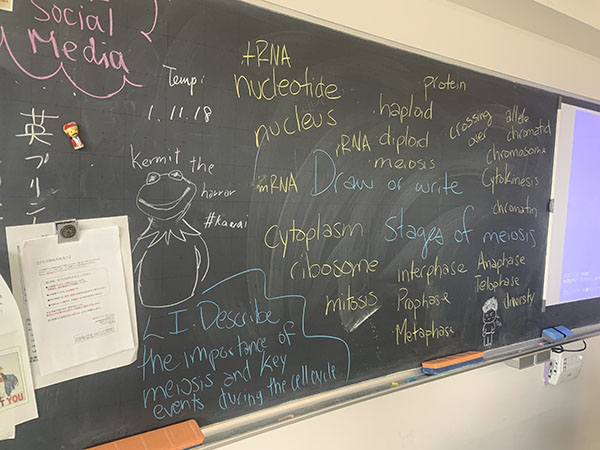 Social
Media
Tempi
1.11.18
英プリン
Kermit the
horror
#kawai
tRNA
nucleotide
nucleus
mRNA
rRNA
protein
haploid
diploid
meiosis
crossing
over
allele
chromatid
chromosome
Cytokinesis
chromatin
Draw or write
Stages of meiosis
Cytoplasm
ribosome
mitosis
Interphase
Prophase
Metaphase
Anaphase
Telophase
diversity
L I: Describe
the importance of
meiosis and key
events during the cell cycle
YOU